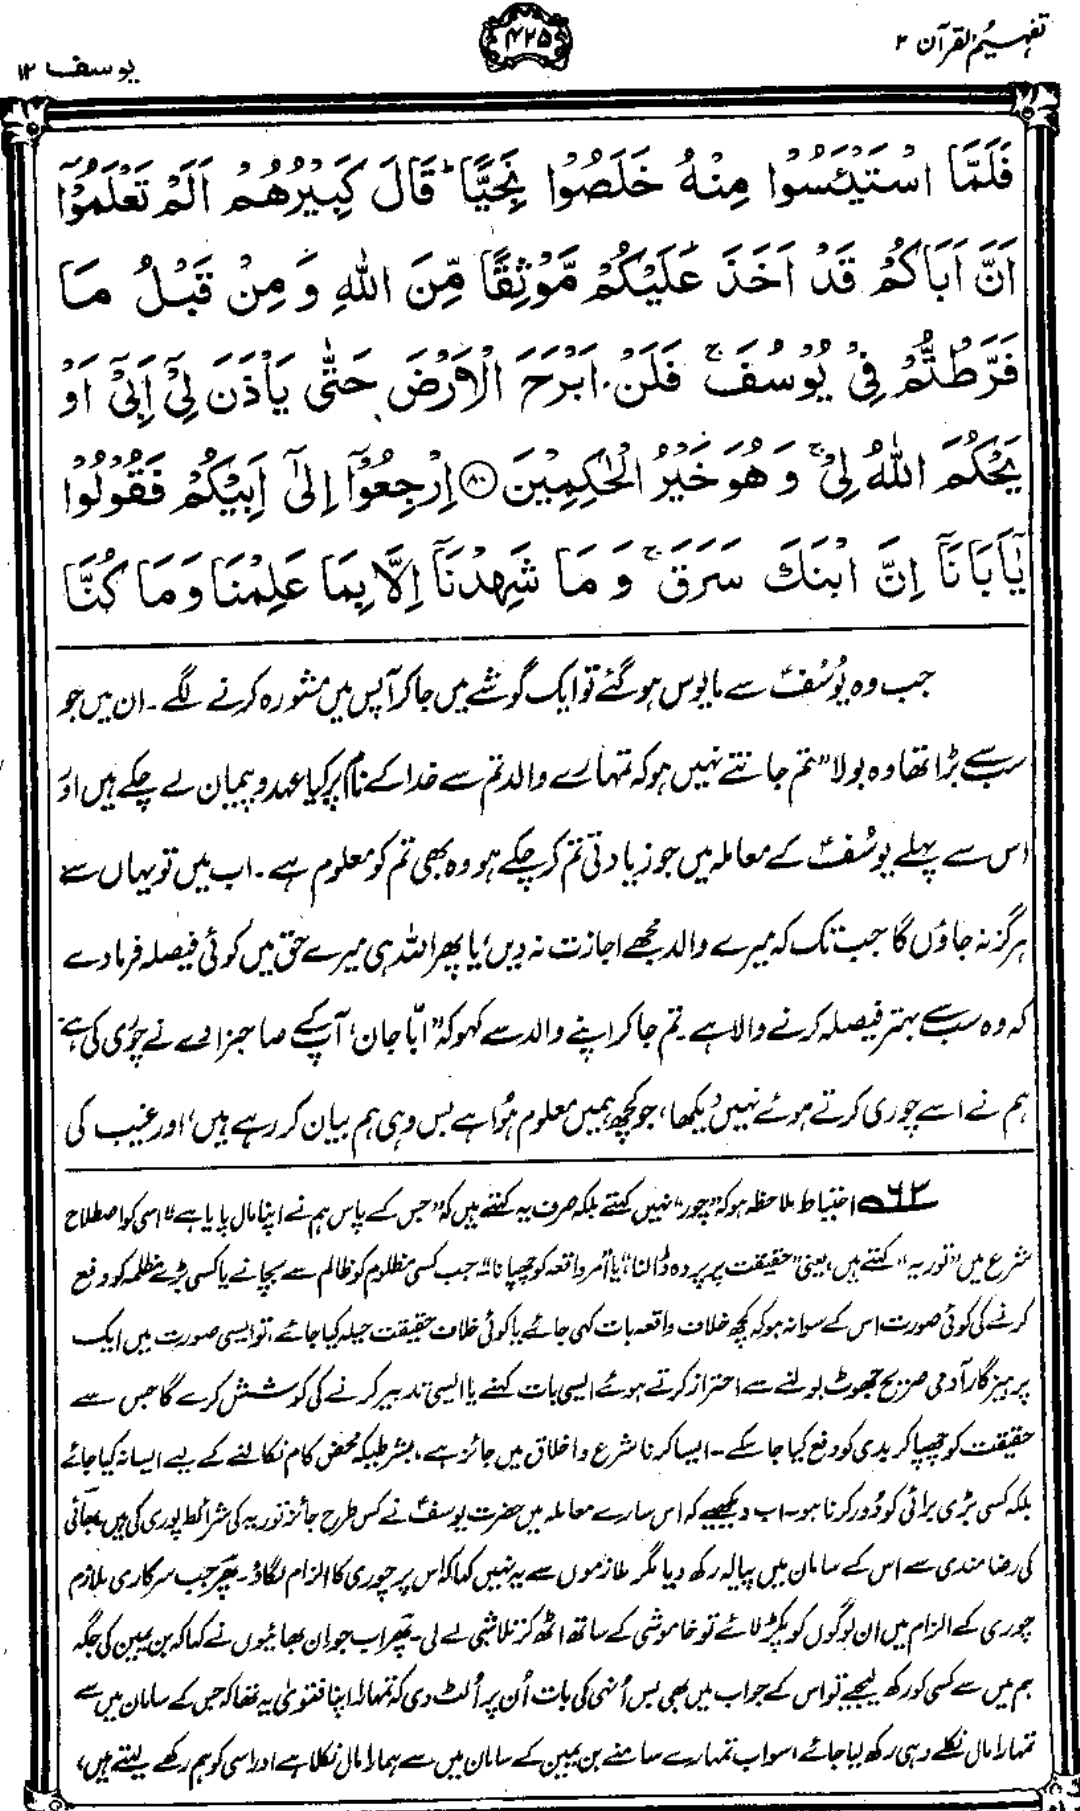 تفہیم القرآن ۲
۴۲۵
یوسف ۱۲
فَلَمَّا اسْتَيْـَٔسُوْا مِنْهُ خَلَصُوْا نَجِيًّا ؕ قَالَ كَبِيْرُهُمْ اَلَمْ تَعْلَمُوْۤا
اَنَّ اَبَاكُمْ قَدْ اَخَذَ عَلَيْكُمْ مَّوْثِقًا مِّنَ اللّٰهِ وَ مِنْ قَبْلُ مَا
فَرَّطْتُّمْ فِيْ يُوْسُفَ ۚ فَلَنْ اَبْرَحَ الْاَرْضَ حَتّٰى يَاْذَنَ لِيْۤ اَبِيْۤ اَوْ
يَحْكُمَ اللّٰهُ لِيْ ۚ وَ هُوَ خَيْرُ الْحٰكِمِيْنَ ۝۸۰ اِرْجِعُوْۤا اِلٰۤى اَبِيْكُمْ فَقُوْلُوْا
يٰۤاَبَانَاۤ اِنَّ ابْنَكَ سَرَقَ ۚ وَ مَا شَهِدْنَاۤ اِلَّا بِمَا عَلِمْنَا وَ مَا كُنَّا
جب وہ یُوسُفؑ سے مایوس ہو گئے تو ایک گوشے میں جا کر آپس میں مشورہ کرنے لگے۔ ان میں جو
سب سے بڑا تھا وہ بولا ”تم جانتے نہیں ہو کہ تمہارے والد تم سے خدا کے نام پر کیا عہد و پیمان لے چکے ہیں اور
اس سے پہلے یوسُفؑ کے معاملہ میں جو زیادتی تم کر چکے ہو وہ بھی تم کو معلوم ہے۔ اب میں تو یہاں سے
ہرگز نہ جاؤں گا جب تک کہ میرے والد مجھے اجازت نہ دیں، یا پھر اللہ ہی میرے حق میں کوئی فیصلہ فرما دے
کہ وہ سب سے بہتر فیصلہ کرنے والا ہے۔ تم جا کر اپنے والد سے کہو کہ ”ابّا جان، آپ کے صاحبزادے نے چوری کی ہے
ہم نے اسے چوری کرتے ہوئے نہیں دیکھا، جو کچھ ہمیں معلوم ہُوا ہے بس وہی ہم بیان کر رہے ہیں، اور غیب کی
۶۳ احتیاط ملاحظہ ہو کہ ”چور“ نہیں کہتے بلکہ صرف یہ کہتے ہیں کہ ”جس کے پاس ہم نے اپنا مال پایا ہے“ اسی کو اصطلاح
شرع میں ”توریہ“ کہتے ہیں، یعنی ”حقیقت پر پردہ ڈالنا“، یا ”امر واقعہ کو چھپانا“ جب کسی مظلوم کو ظالم سے بچانے یا کسی بڑے مظلمہ کو دفع
کرنے کی کوئی صورت اس کے سوا نہ ہو کہ کچھ خلاف واقعہ بات کہی جائے یا کوئی خلاف حقیقت حیلہ کیا جائے، تو ایسی صورت میں ایک
پرہیزگار آدمی صریح جھوٹ بولنے سے احتراز کرتے ہوئے ایسی بات کہنے یا ایسی تدبیر کرنے کی کوشش کرے گا جس سے
حقیقت کو چھپا کر بدی کو دفع کیا جا سکے۔ ایسا کرنا شرع و اخلاق میں جائز ہے، بشرطیکہ محض کام نکالنے کے لیے ایسا نہ کیا جائے
بلکہ کسی بڑی برائی کو دُور کرنا ہو۔ اب دیکھیے کہ اس سارے معاملہ میں حضرت یوسفؑ نے کس طرح جائز توریہ کی شرائط پوری کی ہیں۔ بھائی
کی رضامندی سے اس کے سامان میں پیالہ رکھ دیا مگر ملازموں سے یہ نہیں کہا کہ اس پر چوری کا الزام لگاؤ۔ پھر جب سرکاری ملازم
چوری کے الزام میں ان لوگوں کو پکڑ لائے تو خاموشی کے ساتھ اٹھ کر تلاشی لے لی۔ پھر اب جو ان بھائیوں نے کہا کہ بن یمین کی جگہ
ہم میں سے کسی کو رکھ لیجیے تو اس کے جواب میں بھی بس اُنہی کی بات اُن پر اُلٹ دی کہ تمہارا اپنا فتویٰ یہ تھا کہ جس کے سامان میں سے
تمہارا مال نکلے وہی رکھ لیا جائے، سو اب تمہارے سامنے بن یمین کے سامان میں سے ہمارا مال نکلا ہے اور اسی کو ہم رکھے لیتے ہیں،